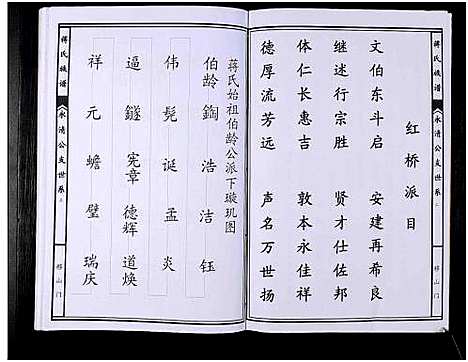 红桥派目
文伯东斗启 安建再希良
继述行宗胜 贤才仕佐邦
体仁长惠吉 敦本永佳祥
德厚流芳远 声名万世扬
蒋氏族谱
永清公支世系
移山门
蒋氏始祖伯龄公派下璇玑图
伯龄 鋾 浩 洁 钰
伟 髡 诞 孟 炎
逼 鐩 宪章 德辉 道焕
祥 元 蟾 璧 瑞庆
蒋氏族谱
永清公支世系
移山门